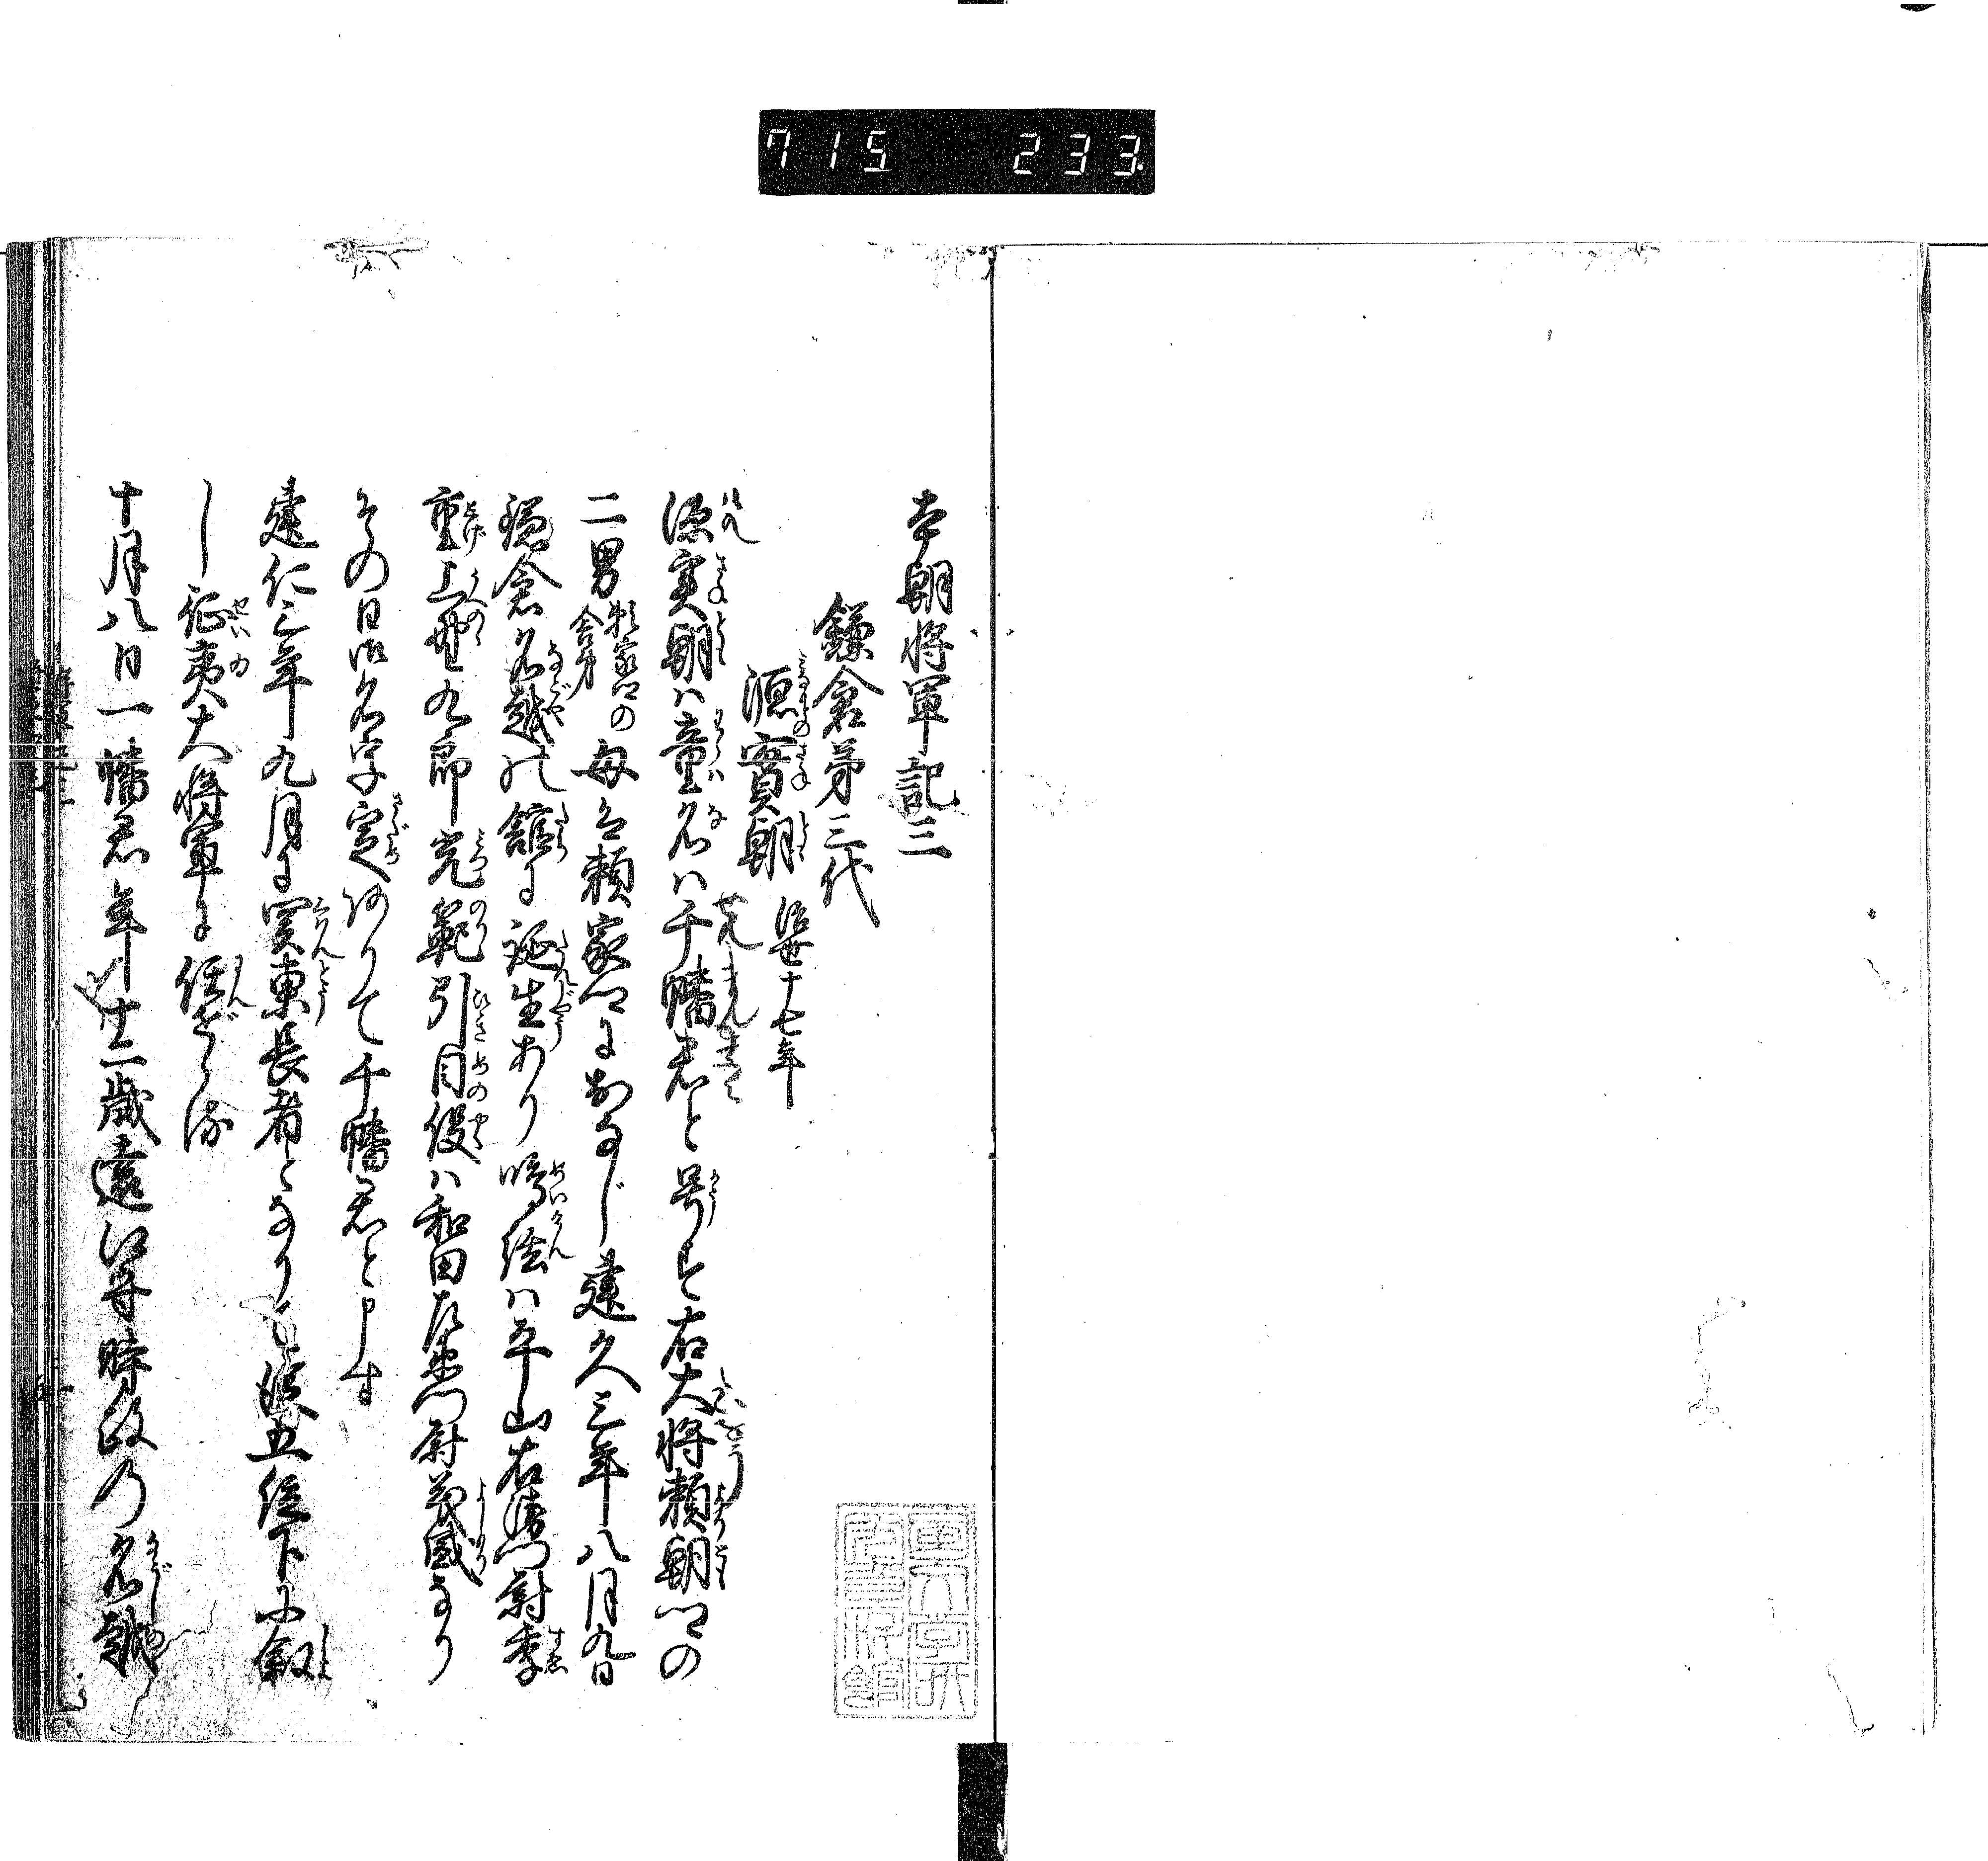 715 233
本朝将軍記三
鎌倉第三代
源實朝 治世十七年
源実朝ハ童名ハ千幡君と号す右大将頼朝卿の
二男頼家卿の舎弟母は頼家卿におなじ建久三年八月九日
鎌倉名越の舘に誕生あり鳴弦ハ平山右衛門尉季
重上野九郎光範引目役ハ和田左衛門尉義盛なり
その日御名字定ありて千幡君と申す
建仁三年九月に関東長者となり従五位下に叙
し征夷大将軍に任ぜらる
十月八日一幡君年十二歳遠江守時政の名越